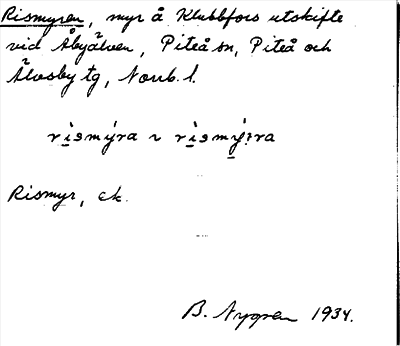 Rismyren, myr å Klubbfors utskifte
vid Åbyälven, Piteå sn, Piteå och
Älvsby tg, Norrb. l.
Rismyr, ek.
B. Nygren 1934.